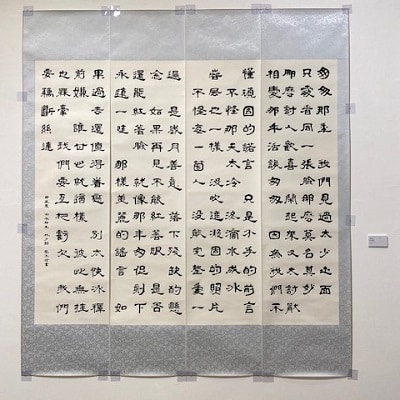 匆匆那年 我們見過太少世面
只愛看同一張臉 那麼莫名其妙
那麼討人歡喜 鬧起來又太討厭
相愛那年活該匆匆 因為我們不
懂頑固的諾言 只是分手的前言
不怪那天太冷 淚滴水成冰
春風也一樣 沒吹進凝固的照片
不怪每一個人 沒能完整愛一
遍 是歲月善意 落下殘缺的懸
念 如果再見不能紅着眼 是否
還能紅着臉 就像那年匆促 刻下
永遠一起 那樣美麗的謠言 如
果過去還值得眷戀 別太快冰釋
前嫌 誰甘心就這樣 彼此無掛
也無牽 我們要互相虧欠 我們
要藕斷絲連